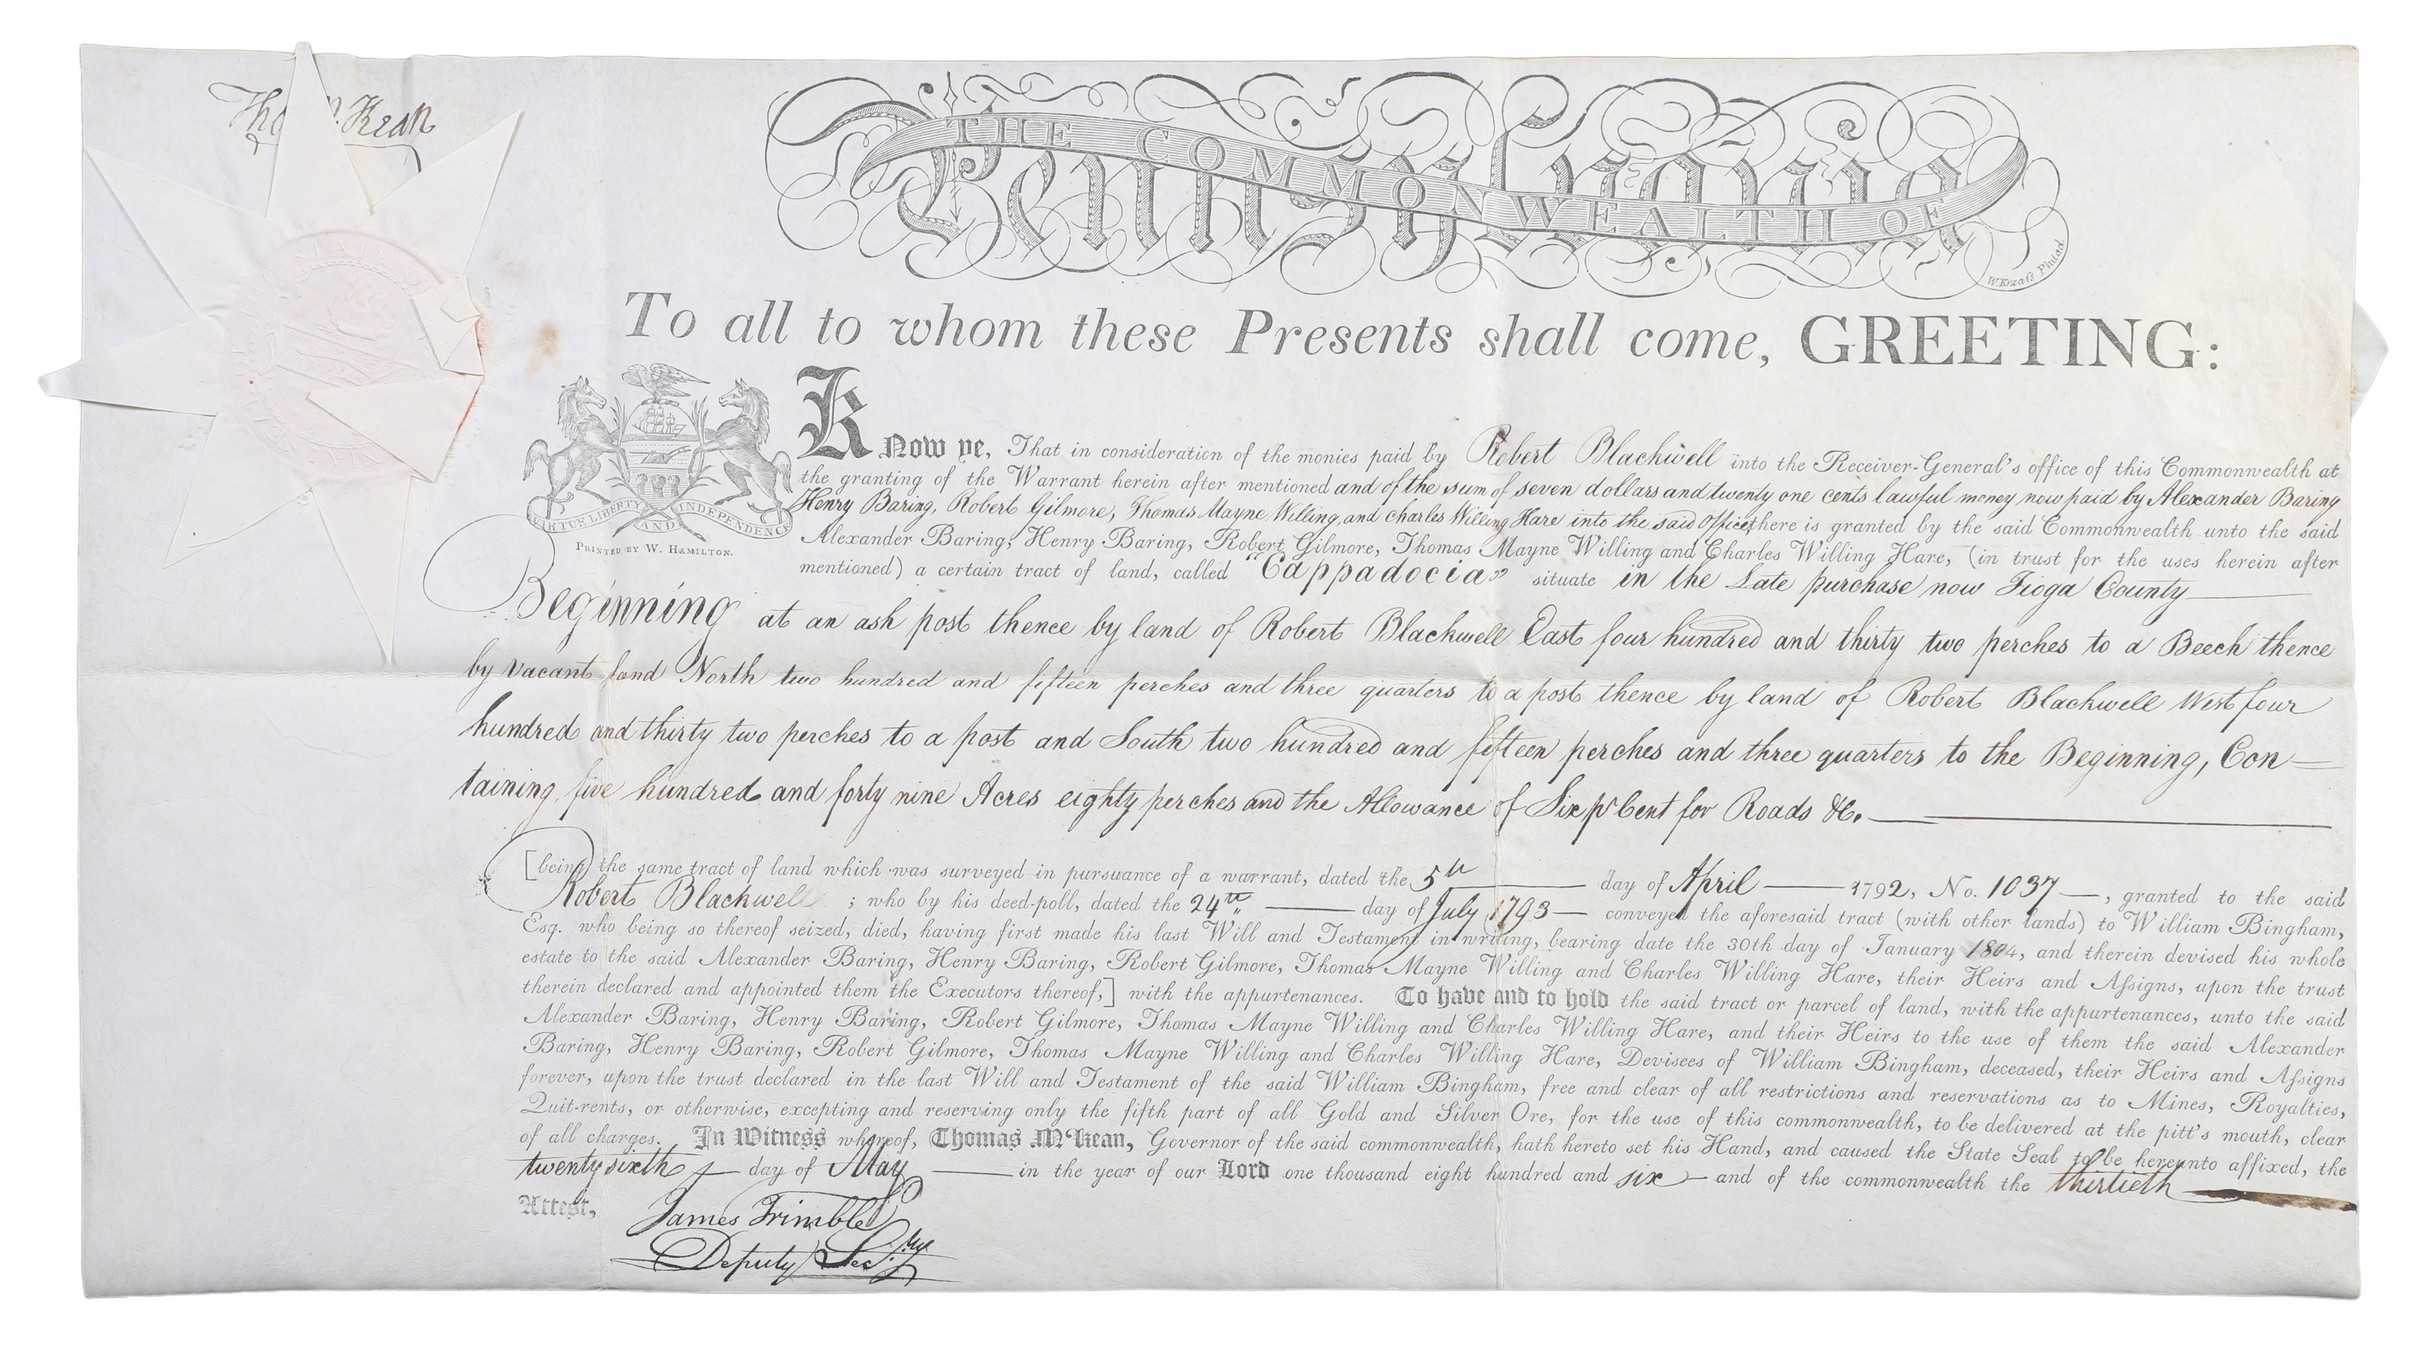 Tho M. Kean
THE COMMONWEALTH OF
Pennsylvania
W. Kneaſs Philad.
To all to whom these Presents shall come, GREETING:
VIRTUE LIBERTY AND INDEPENDENCE
PRINTED BY W. HAMILTON.
KNow ye, That in consideration of the monies paid by Robert Blackwell into the Receiver-General's office of this Commonwealth at
the granting of the Warrant herein after mentioned and of the sum of seven dollars and twenty one cents lawful money now paid by Alexander Baring
Henry Baring, Robert Gilmore, Thomas Mayne Willing, and Charles Willing Hare into the said Office, there is granted by the said Commonwealth unto the said
Alexander Baring, Henry Baring, Robert Gilmore, Thomas Mayne Willing and Charles Willing Hare, (in trust for the uses herein after
mentioned) a certain tract of land, called "Cappadocia" situate in the Late purchase now Tioga County
Beginning at an ash post thence by land of Robert Blackwell East four hundred and thirty two perches to a Beech thence
by vacant land North two hundred and fifteen perches and three quarters to a post thence by land of Robert Blackwell West four
hundred and thirty two perches to a post and South two hundred and fifteen perches and three quarters to the Beginning, Con=
taining five hundred and forty nine Acres eighty perches and the Allowance of Six pr Cent for Roads &c.
[being the same tract of land which was surveyed in pursuance of a warrant, dated the 5th day of April 1792, No. 1037, granted to the said
Robert Blackwell ; who by his deed-poll, dated the 24th day of July 1793 conveyed the aforesaid tract (with other lands) to William Bingham,
Esq. who being so thereof seized, died, having first made his last Will and Testament in writing, bearing date the 30th day of January 1804, and therein devised his whole
estate to the said Alexander Baring, Henry Baring, Robert Gilmore, Thomas Mayne Willing and Charles Willing Hare, their Heirs and Aſsigns, upon the trust
therein declared and appointed them the Executors thereof,] with the appurtenances. To have and to hold the said tract or parcel of land, with the appurtenances, unto the said
Alexander Baring, Henry Baring, Robert Gilmore, Thomas Mayne Willing and Charles Willing Hare, and their Heirs to the use of them the said Alexander
Baring, Henry Baring, Robert Gilmore, Thomas Mayne Willing and Charles Willing Hare, Devisees of William Bingham, deceased, their Heirs and Aſsigns
forever, upon the trust declared in the last Will and Testament of the said William Bingham, free and clear of all restrictions and reservations as to Mines, Royalties,
Quit-rents, or otherwise, excepting and reserving only the fifth part of all Gold and Silver Ore, for the use of this commonwealth, to be delivered at the pitt's mouth, clear
of all charges. In Witness whereof, Thomas M'Kean, Governor of the said commonwealth, hath hereto set his Hand, and caused the State Seal to be hereunto affixed, the
twenty sixth day of May in the year of our Lord one thousand eight hundred and six and of the commonwealth the thirtieth
Attest,
James Trimble
Deputy Secry